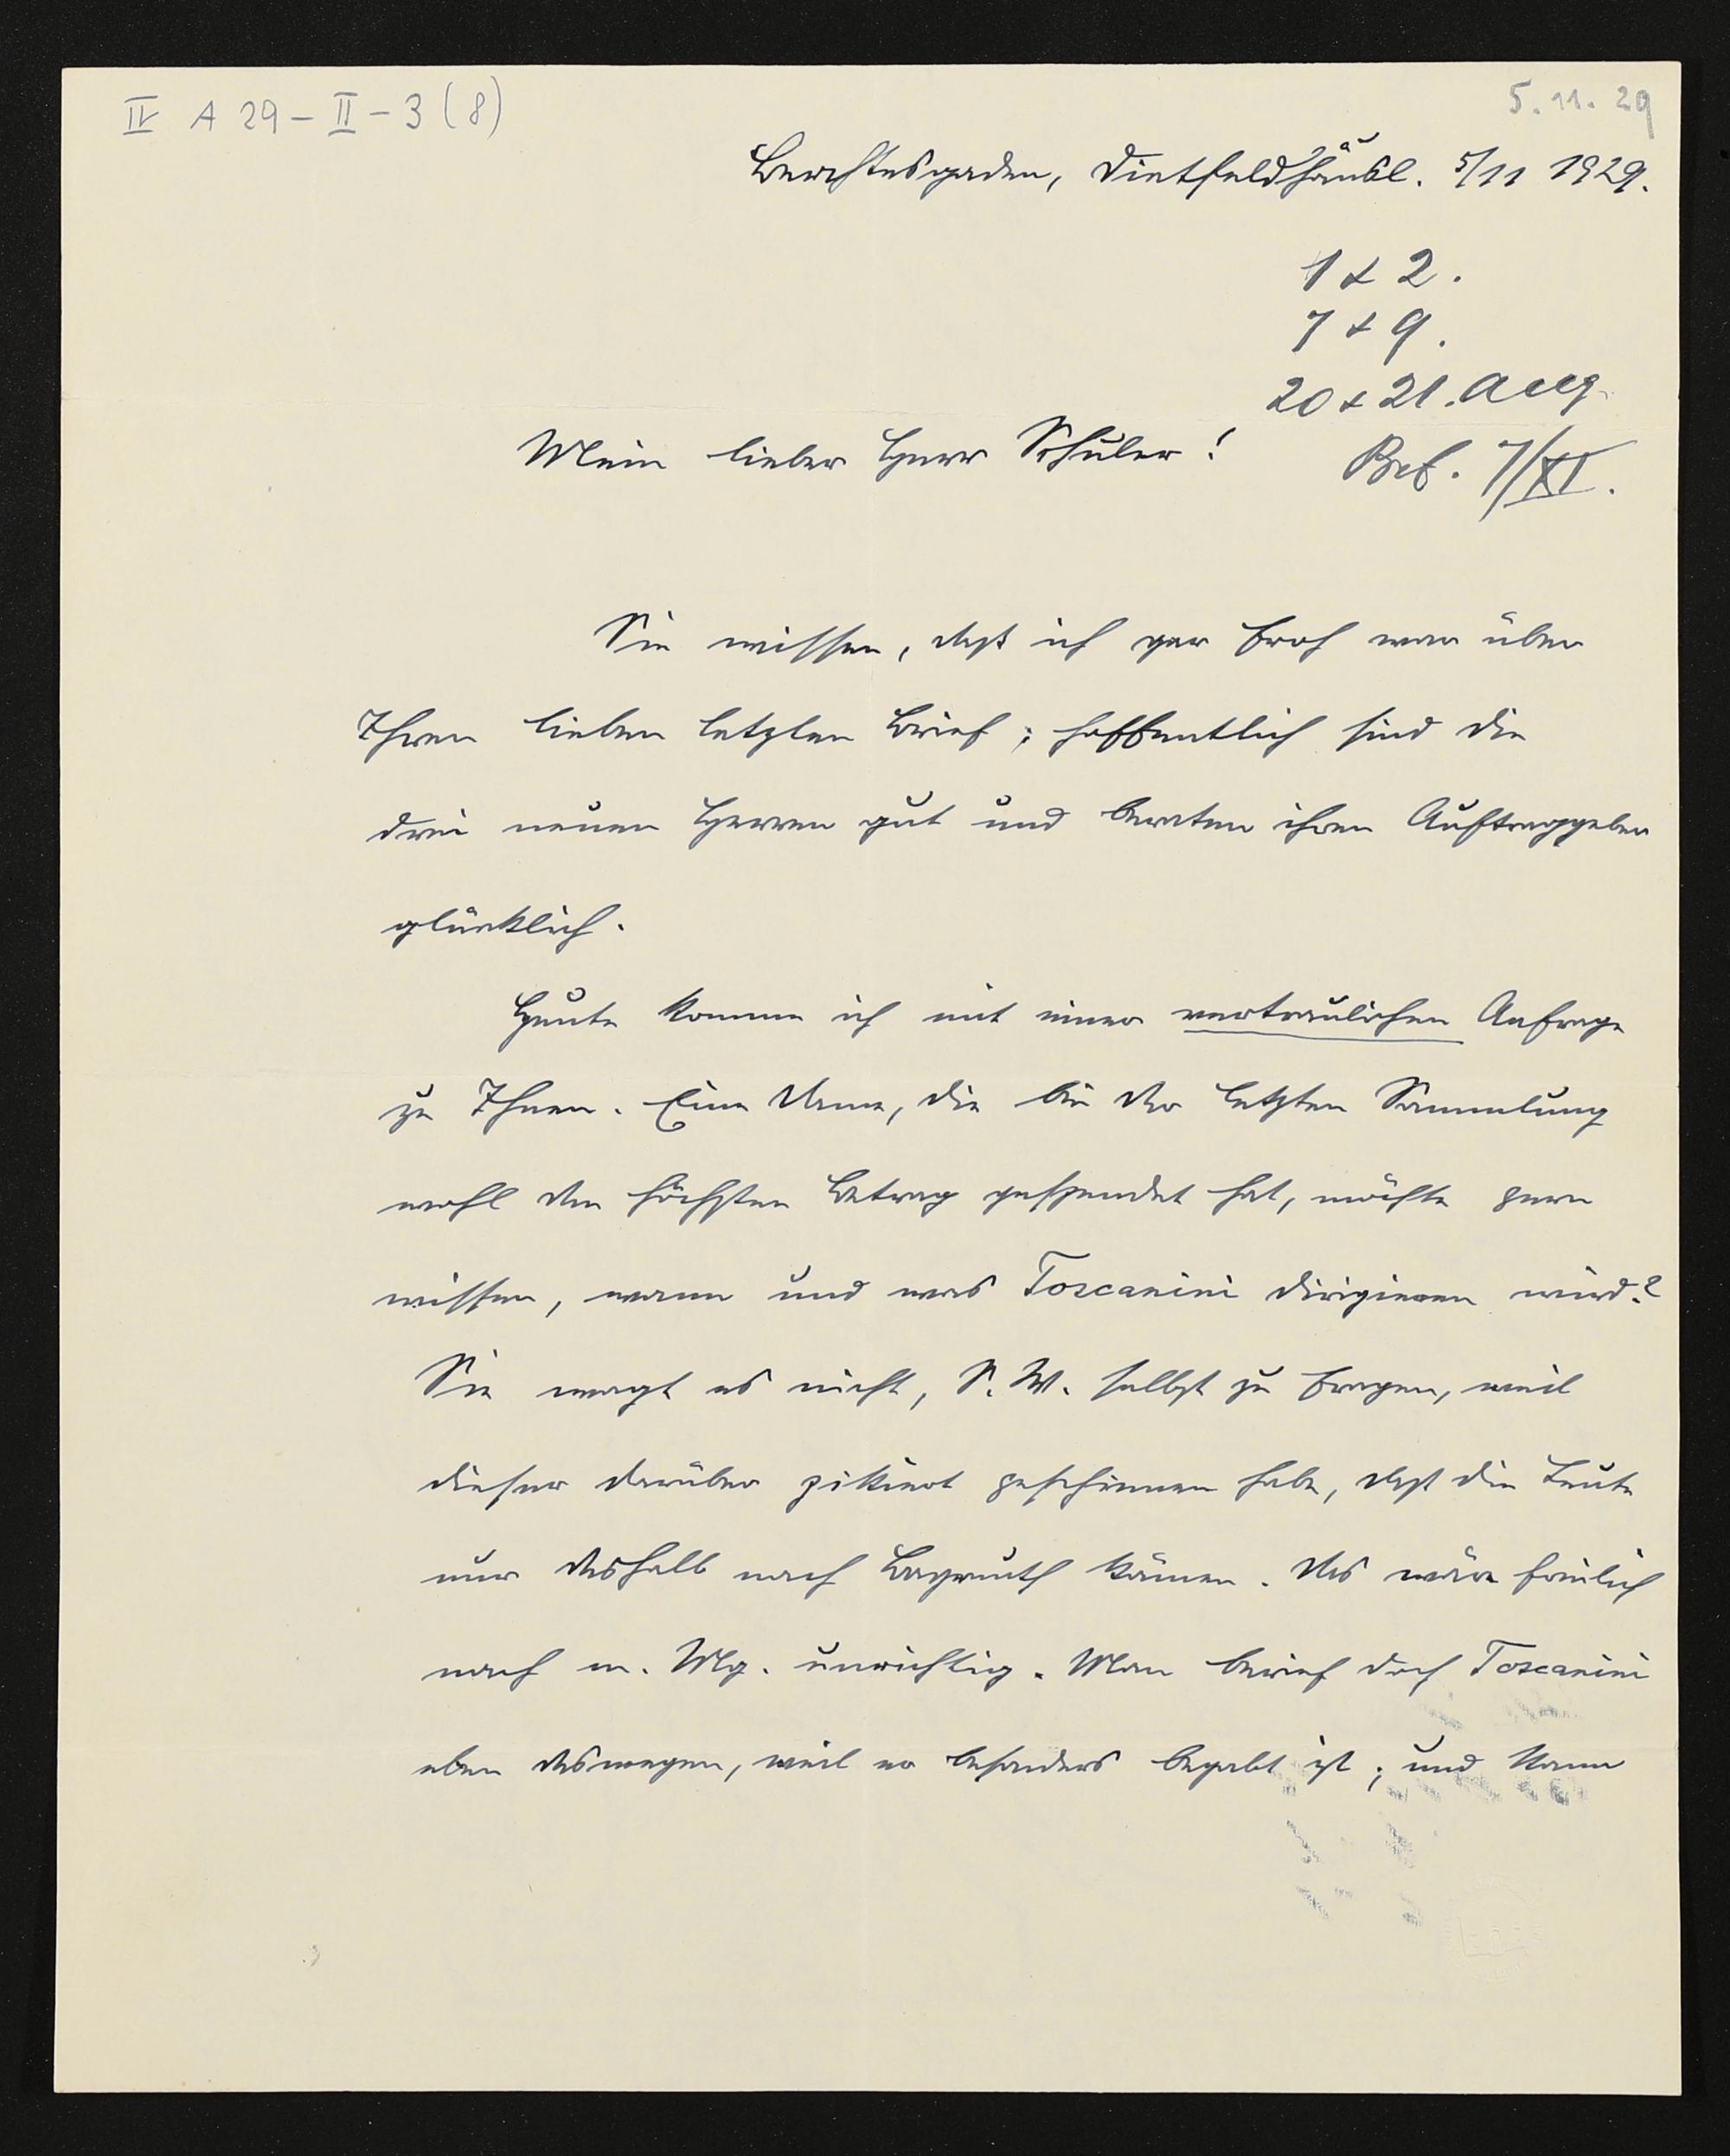 IV A 29 – II – 3 (8)
5. 11. 29
Berchtesgaden, Dietfeldhäusl. 5/11 1929.
1 & 2.
7 & 9.
20 & 21. Aug.
Mein lieber Herr Schuler!
7/XI.
Sie wissen, daß ich gar froh war über
Ihren lieben letzten Brief; hoffentlich sind die
drei neuen Herren gut und beraten ihren Auftraggeber
glücklich.
Heute komme ich mit einer vertraulichen Anfrage
zu Ihnen. Eine Dame, die bei der letzten Sammlung
wohl den höchsten Betrag gespendet hat, möchte gern
wissen, wann und was Toscanini dirigieren wird?
Sie wagt es nicht, S. W. selbst zu fragen, weil
dieser darüber pikiert geschienen habe, daß die Leute
nur deshalb nach Bayreuth kämen. Das wäre freilich
nach m. Mg. unrichtig. Man berief doch Toscanini
eben deswegen, weil er besonders begabt ist; und kann